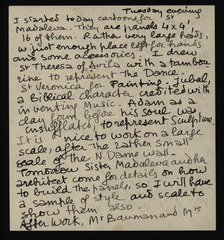 Tuesday evening
I started today cartoons for Sr
Madaleva. They are panels 4 x 4,
16 of them. Rather very large heads,
w just enough place left for hands
and some accessories. I drew
Sr Theresa of Avila with a tambou
rine to represent the Dance.
St Veronica for Painting. Jubal,
a Biblical character credited with
inventing Music. Adam as a
clay form before his soul was
insufflated, to represent Sculpture.
It is of nice to work on a large
scale, after the rather small
scale of the N. Dame wall.
Tomorrow Sister Madaleva and her
architect come for details on how
to build the panels, so I will have
a sample of style and scale to
show them also.
After work, Mr Bauman and Mrs